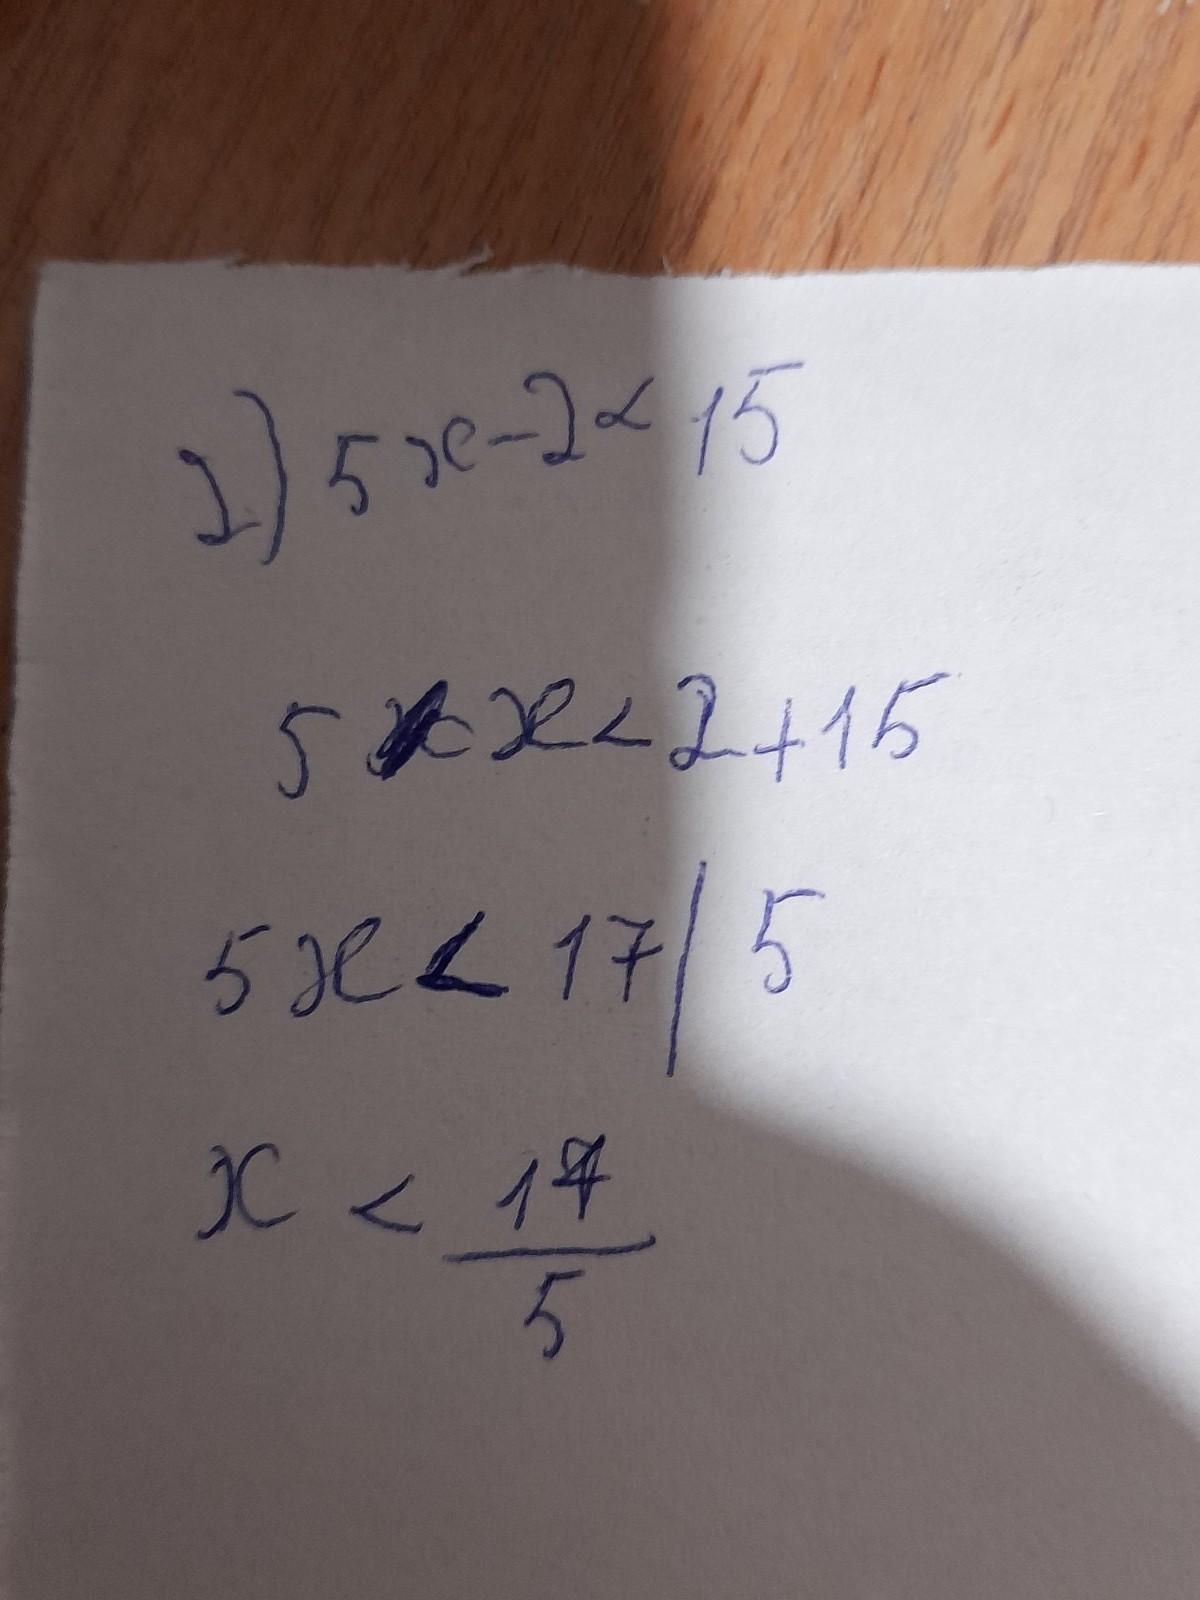 2) 5x-2<15
5 x<2+15
5x< 17/5
x < 17/5